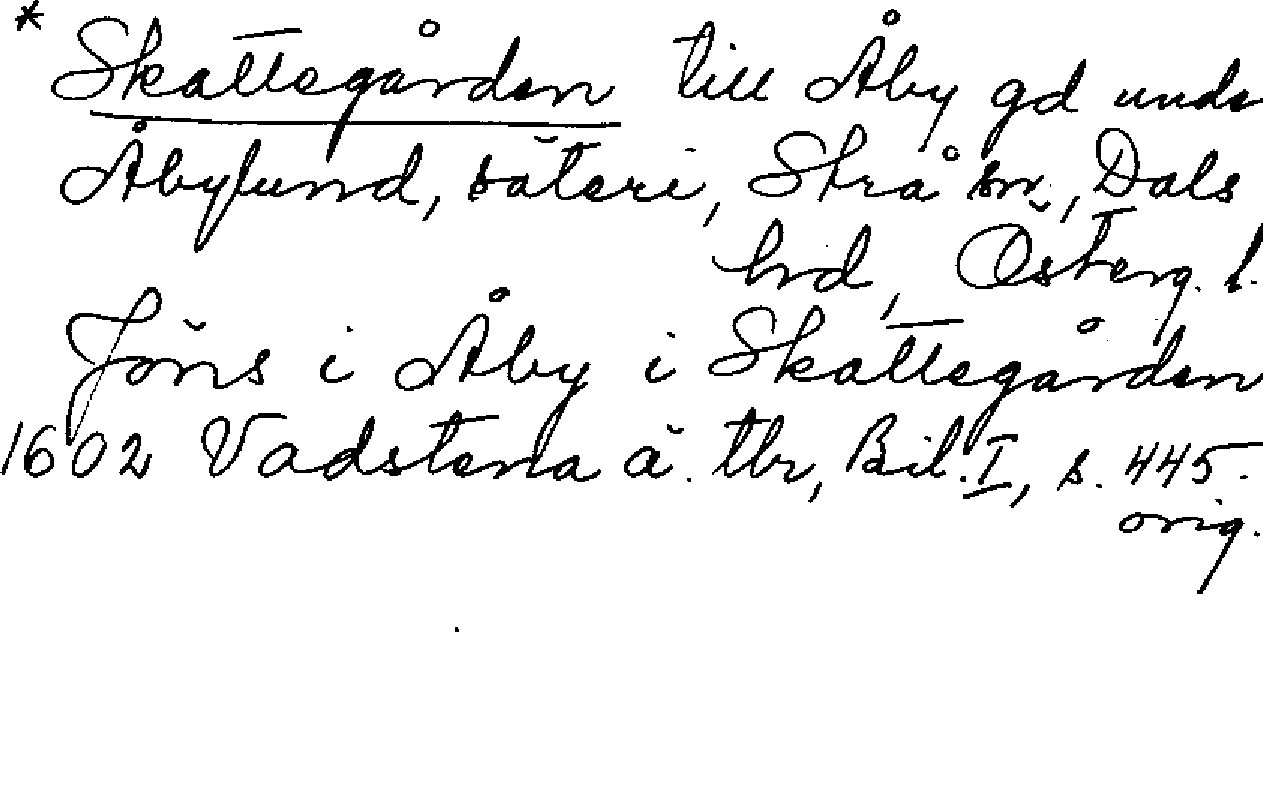 * Skattegården till Åby gd unde
Åbylund, säteri, Strå sn, Dals
hrd, Österg. l.
Jöns i Åby i Skattegården
1602 Vadstena ä. tbr, Bil. I, s. 445.
orig.